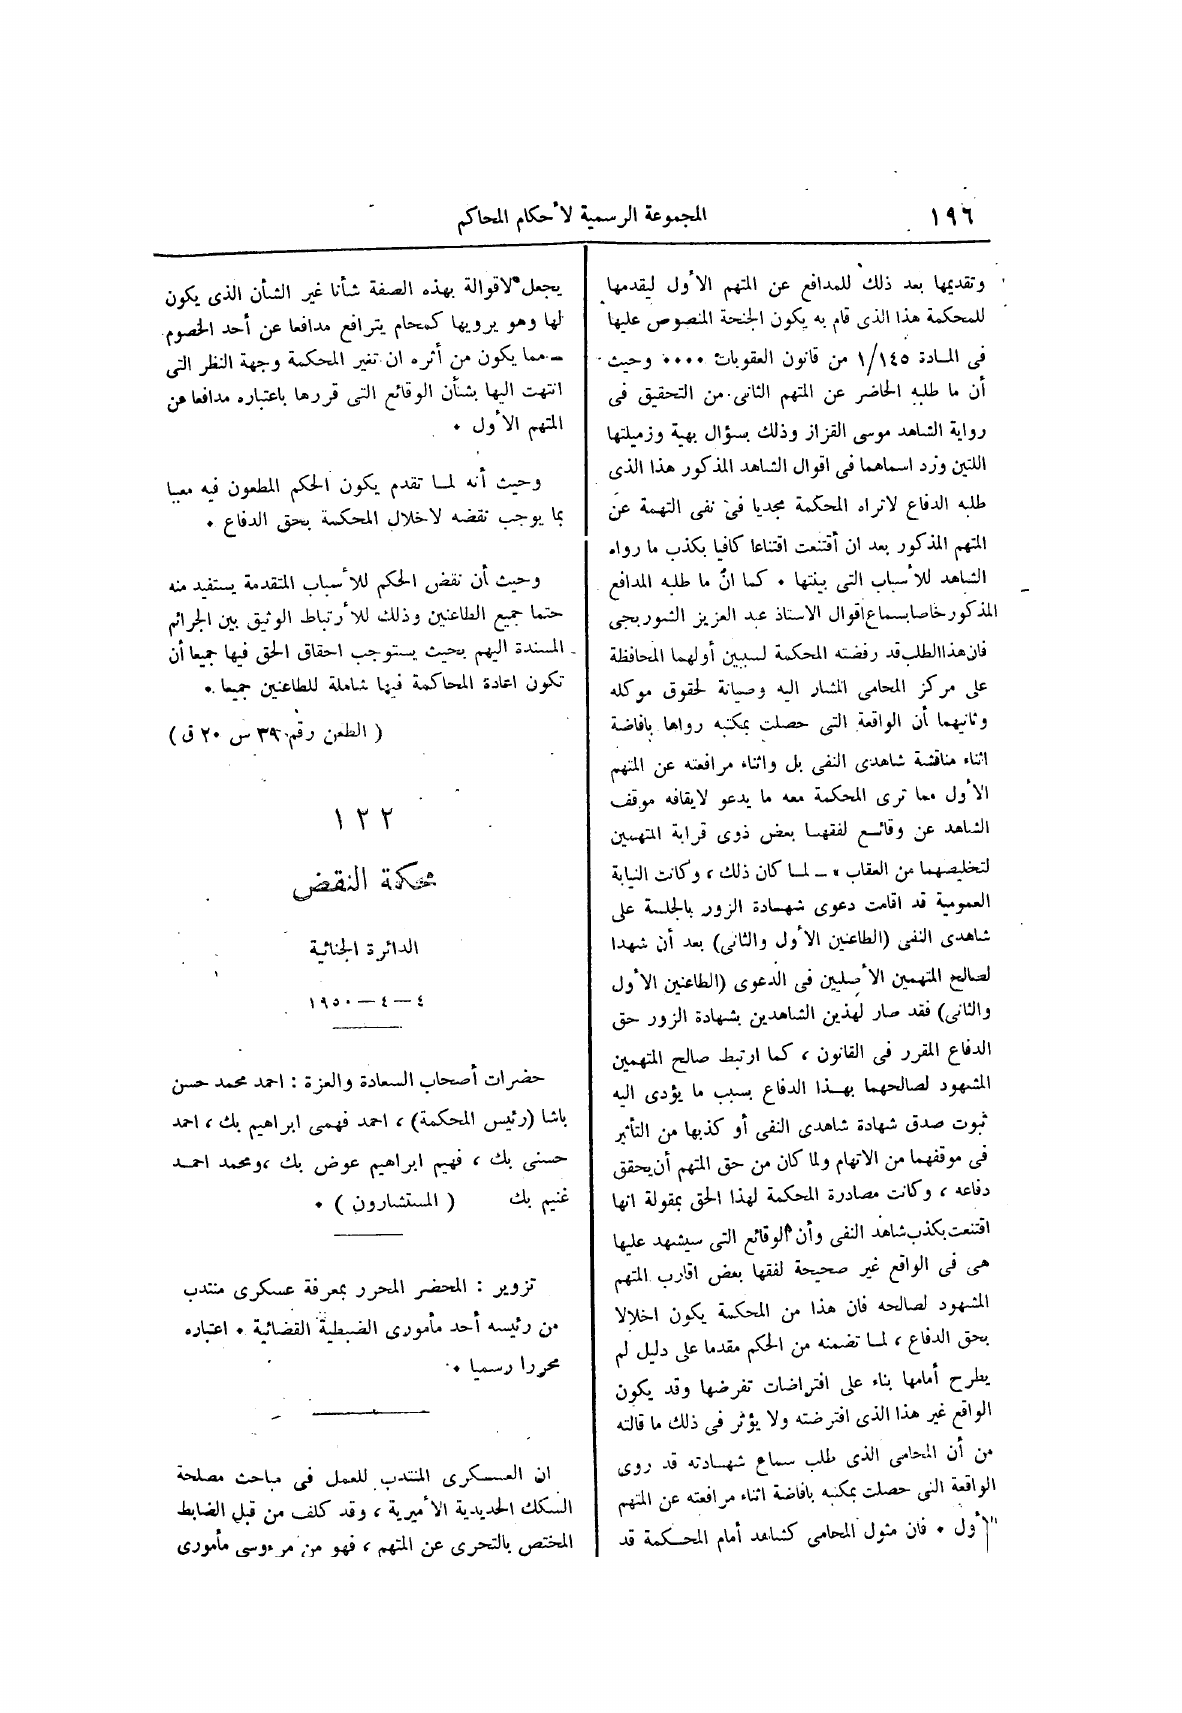 ١٩٦
المجموعة الرسمية لأحكام المحاكم
وتقديمها بعد ذلك للمدافع عن المتهم الأول ليقدمها
للمحكمة هذا الذى قام به يكون الجنحة المنصوص عليها
فى المادة ١/١٤٥ من قانون العقوبات ٠٠٠٠ وحيث
أن ما طلبه الحاضر عن المتهم الثانى من التحقيق فى
رواية الشاهد موسى القزاز وذلك بسؤال بهية وزميلتها
اللتين ورد اسماهما فى اقوال الشاهد المذكور هذا الذى
طلبه الدفاع لاتراه المحكمة مجديا فى نفى التهمة عن
المتهم المذكور بعد ان أقتنعت اقتناعا كافيا بكذب ما رواه
الشاهد للأسباب التى بينتها ٠ كما ان ما طلبه المدافع
المذكور خاصا بسماع اقوال الاستاذ عبد العزيز الشوربجى
فان هذا الطلب قد رفضته المحكمة لسببين أولهما المحافظة
على مركز المحامى المشار اليه وصيانة لحقوق موكله
وثانيهما أن الواقعة التى حصلت بمكتبه رواها بافاضة
اثناء مناقشة شاهدى النفى بل واثناء مرافعته عن المتهم
الأول مما ترى المحكمة معه ما يدعو لايقافه موقف
الشاهد عن وقائع لفقهما بعض ذوى قرابة المتهمين
لتخليصهما من العقاب » ــ لما كان ذلك ، وكانت النيابة
العمومية قد اقامت دعوى شهادة الزور بالجلسة على
شاهدى النفى (الطاعنين الأول والثانى) بعد أن شهدا
لصالح المتهمين الأصليين فى الدعوى (الطاعنين الأول
والثانى) فقد صار لهذين الشاهدين بشهادة الزور حق
الدفاع المقرر فى القانون ، كما ارتبط صالح المتهمين
المشهود لصالحهما بهذا الدفاع بسبب ما يؤدى اليه
ثبوت صدق شهادة شاهدى النفى أو كذبها من التأثير
فى موقفهما من الاتهام ولما كان من حق المتهم أن يحقق
دفاعه ، وكانت مصادرة المحكمة لهذا الحق بمقولة انها
اقتنعت بكذب شاهد النفى وأن الوقائع التى سيشهد عليها
هى فى الواقع غير صحيحة لفقها بعض اقارب المتهم
المشهود لصالحه فان هذا من المحكمة يكون اخلالا
بحق الدفاع ، لما تضمنه من الحكم مقدما على دليل لم
يطرح أمامها بناء على افتراضات تفرضها وقد يكون
الواقع غير هذا الذى افترضته ولا يؤثر فى ذلك ما قالته
من أن المحامى الذى طلب سماع شهادته قد روى
الواقعة التى حصلت بمكتبه بافاضة اثناء مرافعته عن المتهم
الأول ٠ فان مثول المحامى كشاهد أمام المحكمة قد
يجعل لاقوالة بهذه الصفة شأنا غير الشأن الذى يكون
لها وهو يرويها كمحام يترافع مدافعا عن أحد الخصوم
ــ مما يكون من أثره ان تغير المحكمة وجهة النظر التى
انتهت اليها بشأن الوقائع التى قررها باعتباره مدافعا عن
المتهم الأول ٠
وحيث أنه لما تقدم يكون الحكم المطعون فيه معيبا
بما يوجب نقضه لاخلال المحكمة بحق الدفاع ٠
وحيث أن نقض الحكم للأسباب المتقدمة يستفيد منه
حتما جميع الطاعنين وذلك للأرتباط الوثيق بين الجرائم
المسندة اليهم بحيث يستوجب احقاق الحق فيها جميعا أن
تكون اعادة المحاكمة فيها شاملة للطاعنين جميعا ٠
( الطعن رقم ٣٩ س ٢٠ ق )
١٢٢
محكمة النقض
الدائرة الجنائية
٤ – ٤ – ١٩٥٠
حضرات أصحاب السعادة والعزة : احمد محمد حسن
باشا (رئيس المحكمة) ، احمد فهمى ابراهيم بك ، احمد
حسنى بك ، فهيم ابراهيم عوض بك ، ومحمد احمد
غنيم بك ( المستشارون ) ٠
تزوير : المحضر المحرر بمعرفة عسكرى منتدب
من رئيسه أحد مأمورى الضبطية القضائية ٠ اعتباره
محررا رسميا ٠
ان العسكرى المنتدب للعمل فى مباحث مصلحة
السكك الحديدية الأميرية ، وقد كلف من قبل الضابط
المختص بالتحرى عن المتهم ، فهو من مرءوسى مأمورى